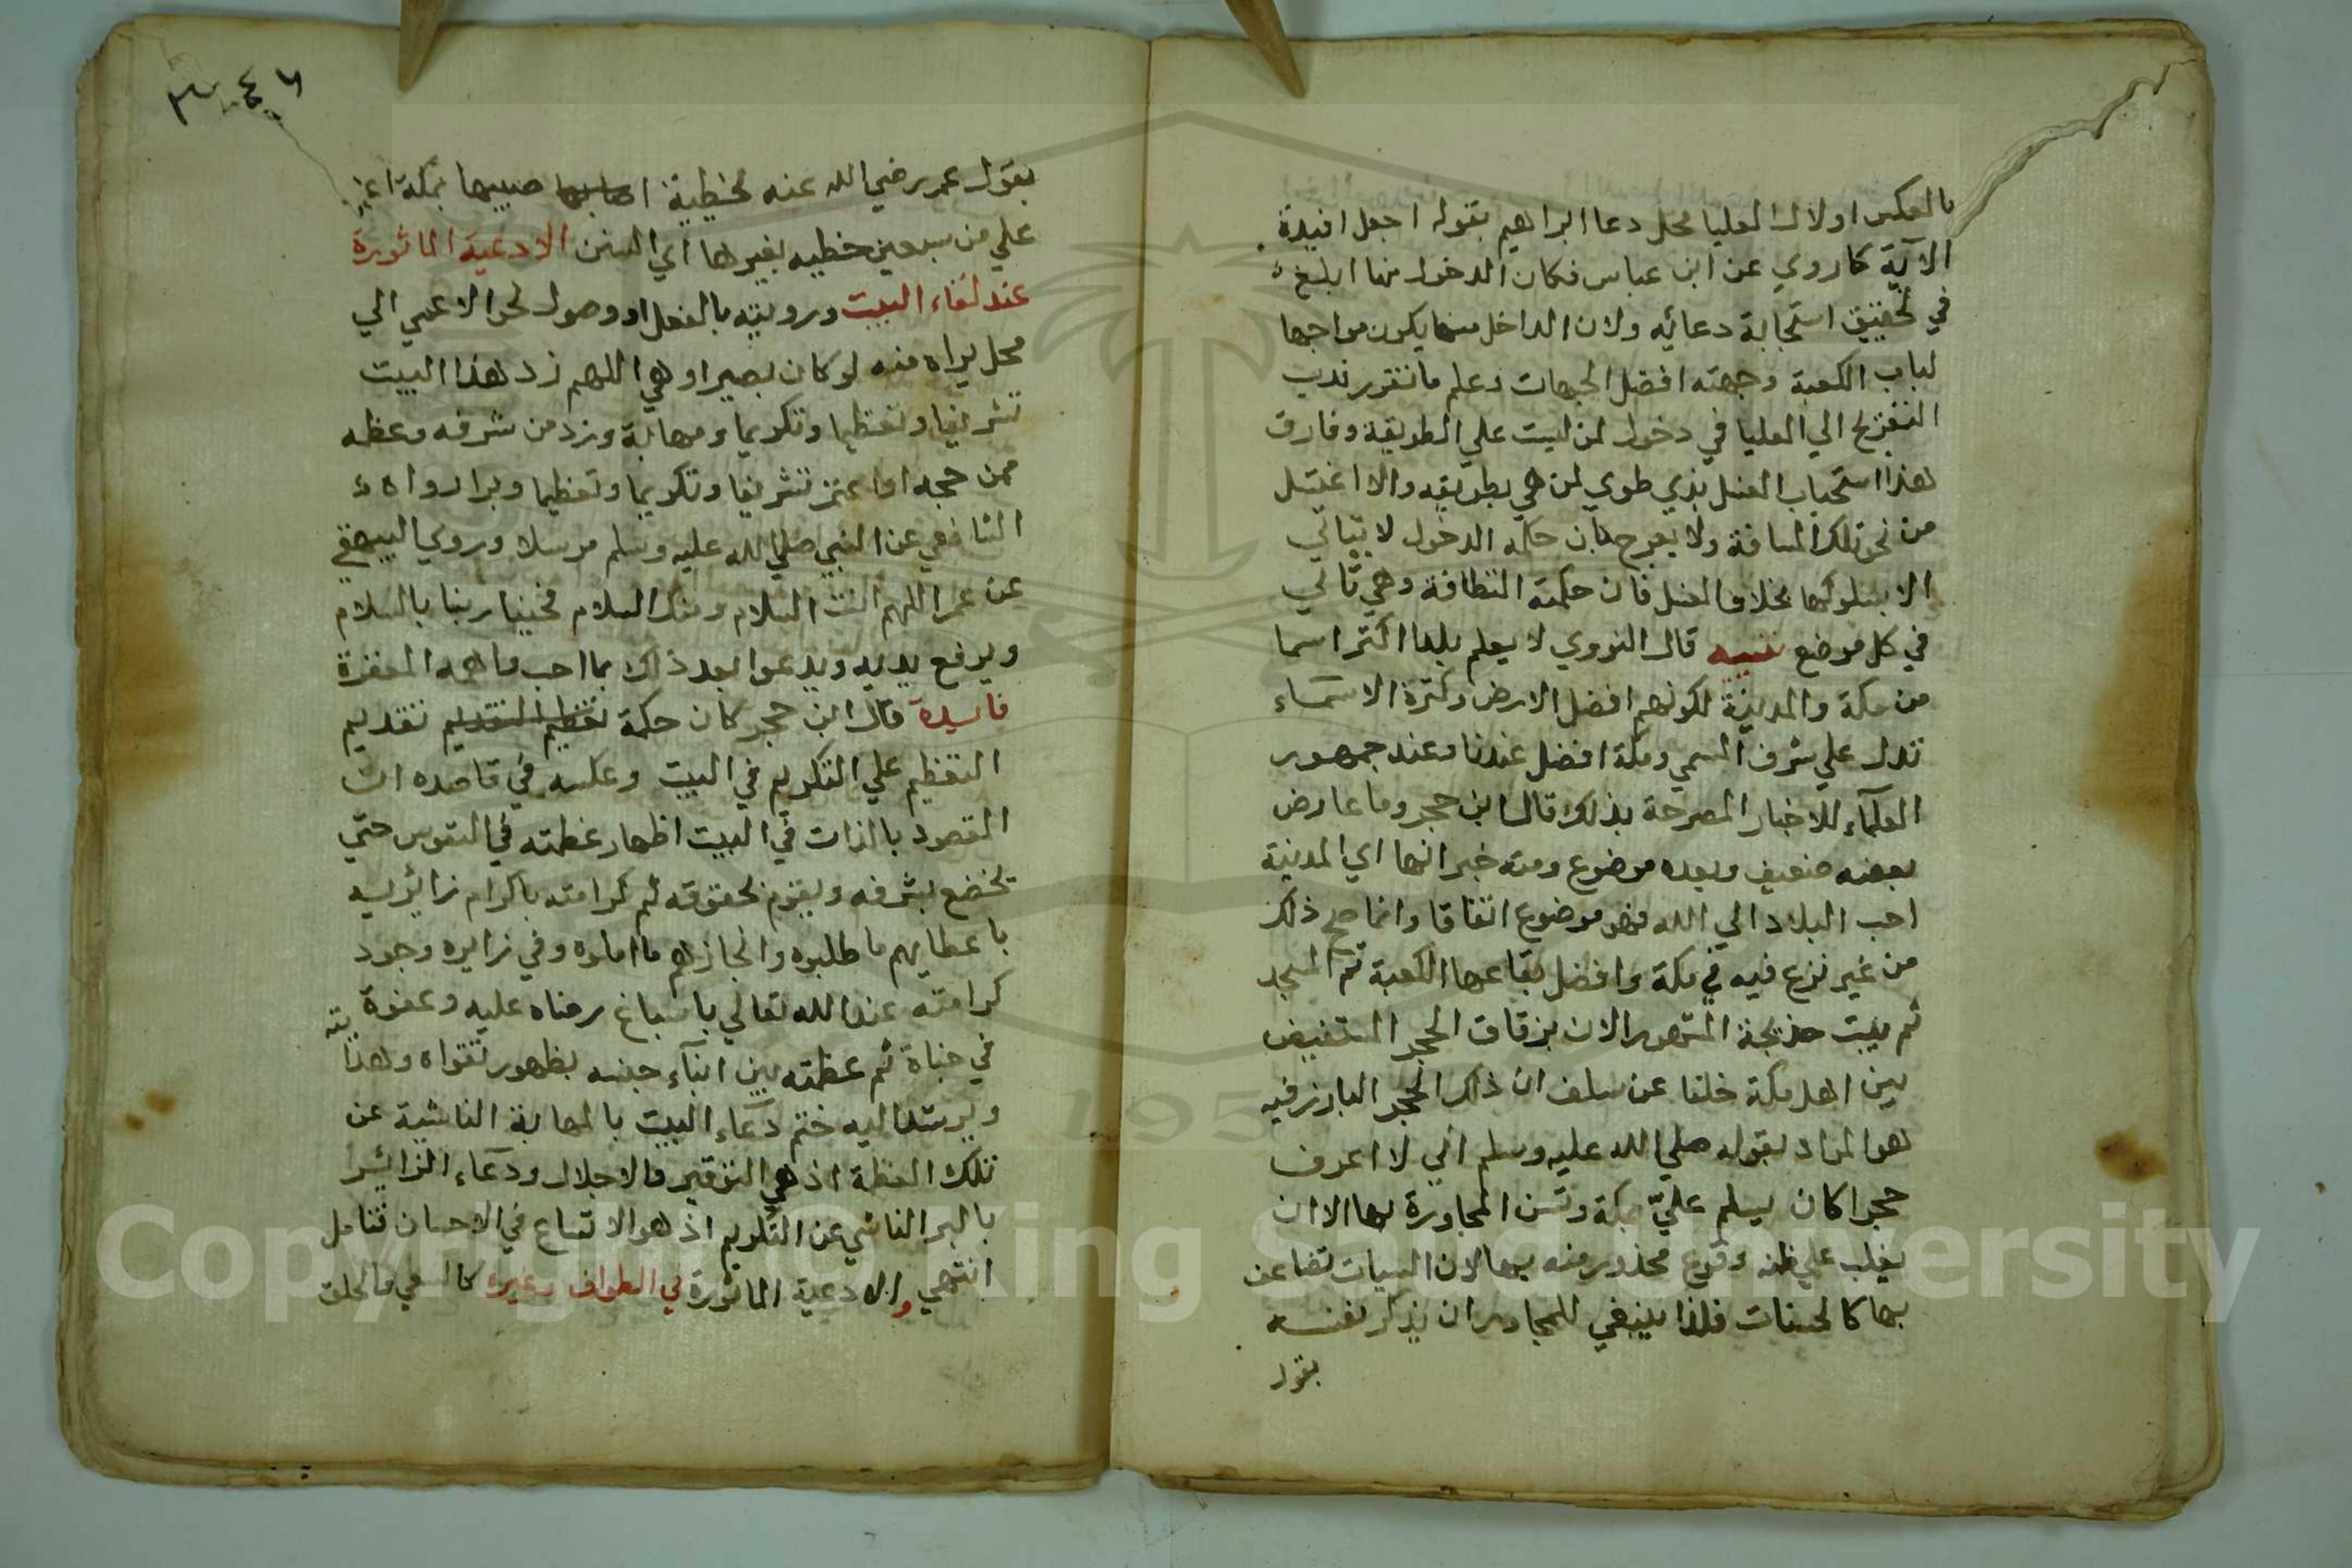 بالعكس اولان العليا محل دعا ابراهيم بقوله اجعل افيدة
الآية كما روي عن ابن عباس فكان الدخول منها ابلغ
في تحقيق استجابة دعائه ولان الداخل منها يكون مواجها
لباب الكعبة وجهته افضل الجهات وعلم ما تقرر ندب
التعريج الي العليا في دخول لمن ليست علي الطريقة وفارق
هذا استحباب الغسل بذي طوي لمن هي بطريقه والا اغتسل
من نحو تلك المسافة ولا يعرج بان حكمه الدخول لا يتاتي
الا بسلوكها بخلاف الغسل فان حكمته النظافة وهي تاتي
في كل موضع تنبيه قال النووي لا يعلم بلدا اكثر اسما
من مكة والمدينة لكونهم افضل الارض وكثرة الاسماء
تدل علي شرف المسمي ومكة افضل عندنا وعند جمهور
العلماء للاخبار المصرحة بذلك قال ابن حجر وما عارض
بعضه ضعيف وبعده موضوع ومنه خبر انها اي المدينة
احب البلاد الي الله فهو موضوع اتفاقا وانما صح ذلك
من غير نزع فيه في مكة وافضل بقاعها الكعبة ثم المسجد
ثم بيت خديجة المشهور الان بزقاق الحجر المستفيض
بين اهل مكة خلفا عن سلف ان ذلك الحجر البارز فيه
هو المراد بقوله صلي الله عليه وسلم اني لا اعرف
حجرا كان يسلم عليّ بمكة وتسن المجاورة بها الا ان
يغلب علي ظنه وقوع محذور منه بها لان السيات تضاعف
بها كالحسنات فلذا ينبغي للمجاور ان يذكر نفسه
بقول
٣٠٤٦
بقول عمر رضي الله عنه لخطيئة اصابها صبيها بمكة اعز
علي من سبعين خطيه بغيرها اي السنن الادعية الماثورة
عند لقاء البيت ورويته بالفعل او وصول نحو الاعمي الي
محل يراه منه لو كان بصيرا وهي اللهم زد هذا البيت
تشريفا وتعظيما وتكريما ومهابة وزد من شرفه وعظمه
ممن حجه او اعتمر تشريفا وتكريما وتعظيما وبرا رواه
الشافعي عن النبي صلي الله عليه وسلم مرسلا وروي البيهقي
عن عمر اللهم انت السلام ومنك السلام فحينا ربنا بالسلام
ويرفع يديه ويدعوا بعد ذلك بما احب واهمه المغفرة
فايدة قال ابن حجر كان حكمة تعظيم التقديم تقديم
التعظيم علي التكريم في البيت وعكسه في قاصده ان
المقصود بالذات في البيت اظهار عظمته في النفوس حتي
تخضع بشرفه ويقوم بحقوقه ثم كرامته باكرام زائريه
باعطايهم ما طلبوه وانجازهم ما املوه وفي زايره وجود
كرامته عند الله تعالي باسباغ رضاه عليه وعفوه
في جناة ثم عظمته بين ابنآء جنسه بظهور تقواه وهدايته
ويرشد اليه ختم دعاء البيت بالمهابة الناشية عن
تلك العظمة اذ هي التوقير والاجلال ودعاء الزائر
بالبر الناشي عن التكريم اذ هو الاتساع في الاحسان فتامل
انتهي والادعية الماثورة في الطواف وغيره كالسعي والحلق
Copyright © King Saud University
195